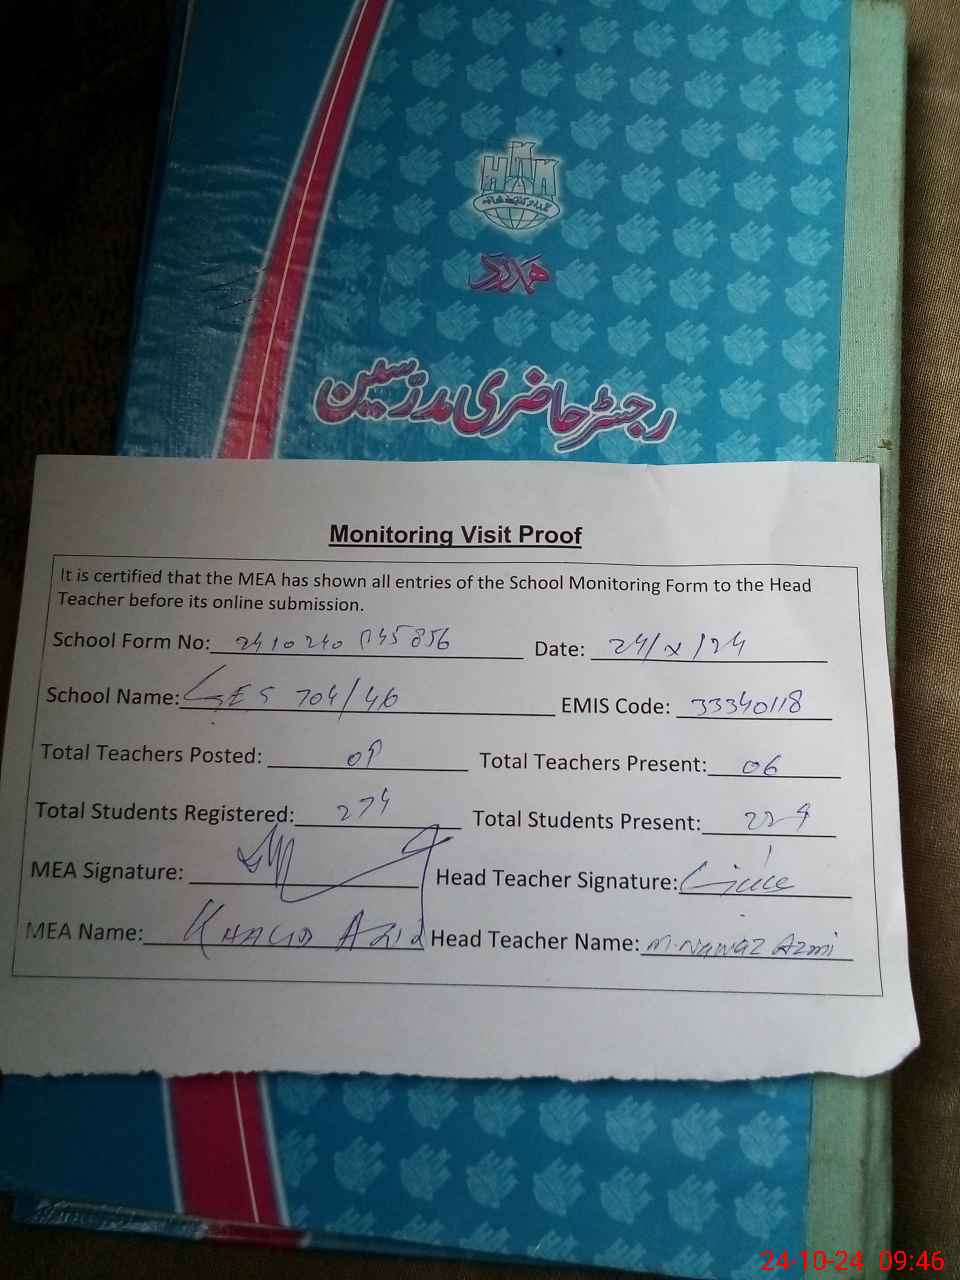 ہمدرد
رجسٹر حاضری مدرسین
Monitoring Visit Proof
It is certified that the MEA has shown all entries of the School Monitoring Form to the Head
Teacher before its online submission.
School Form No: Date: 24/X/24
School Name: GES 704/46 EMIS Code: 33340118
Total Teachers Posted: Total Teachers Present: 06
Total Students Registered: 274 Total Students Present:
MEA Signature: Head Teacher Signature:
MEA Name: KHALID AZIZ Head Teacher Name: M. Nawaz Azmi
24-10-24 09:46